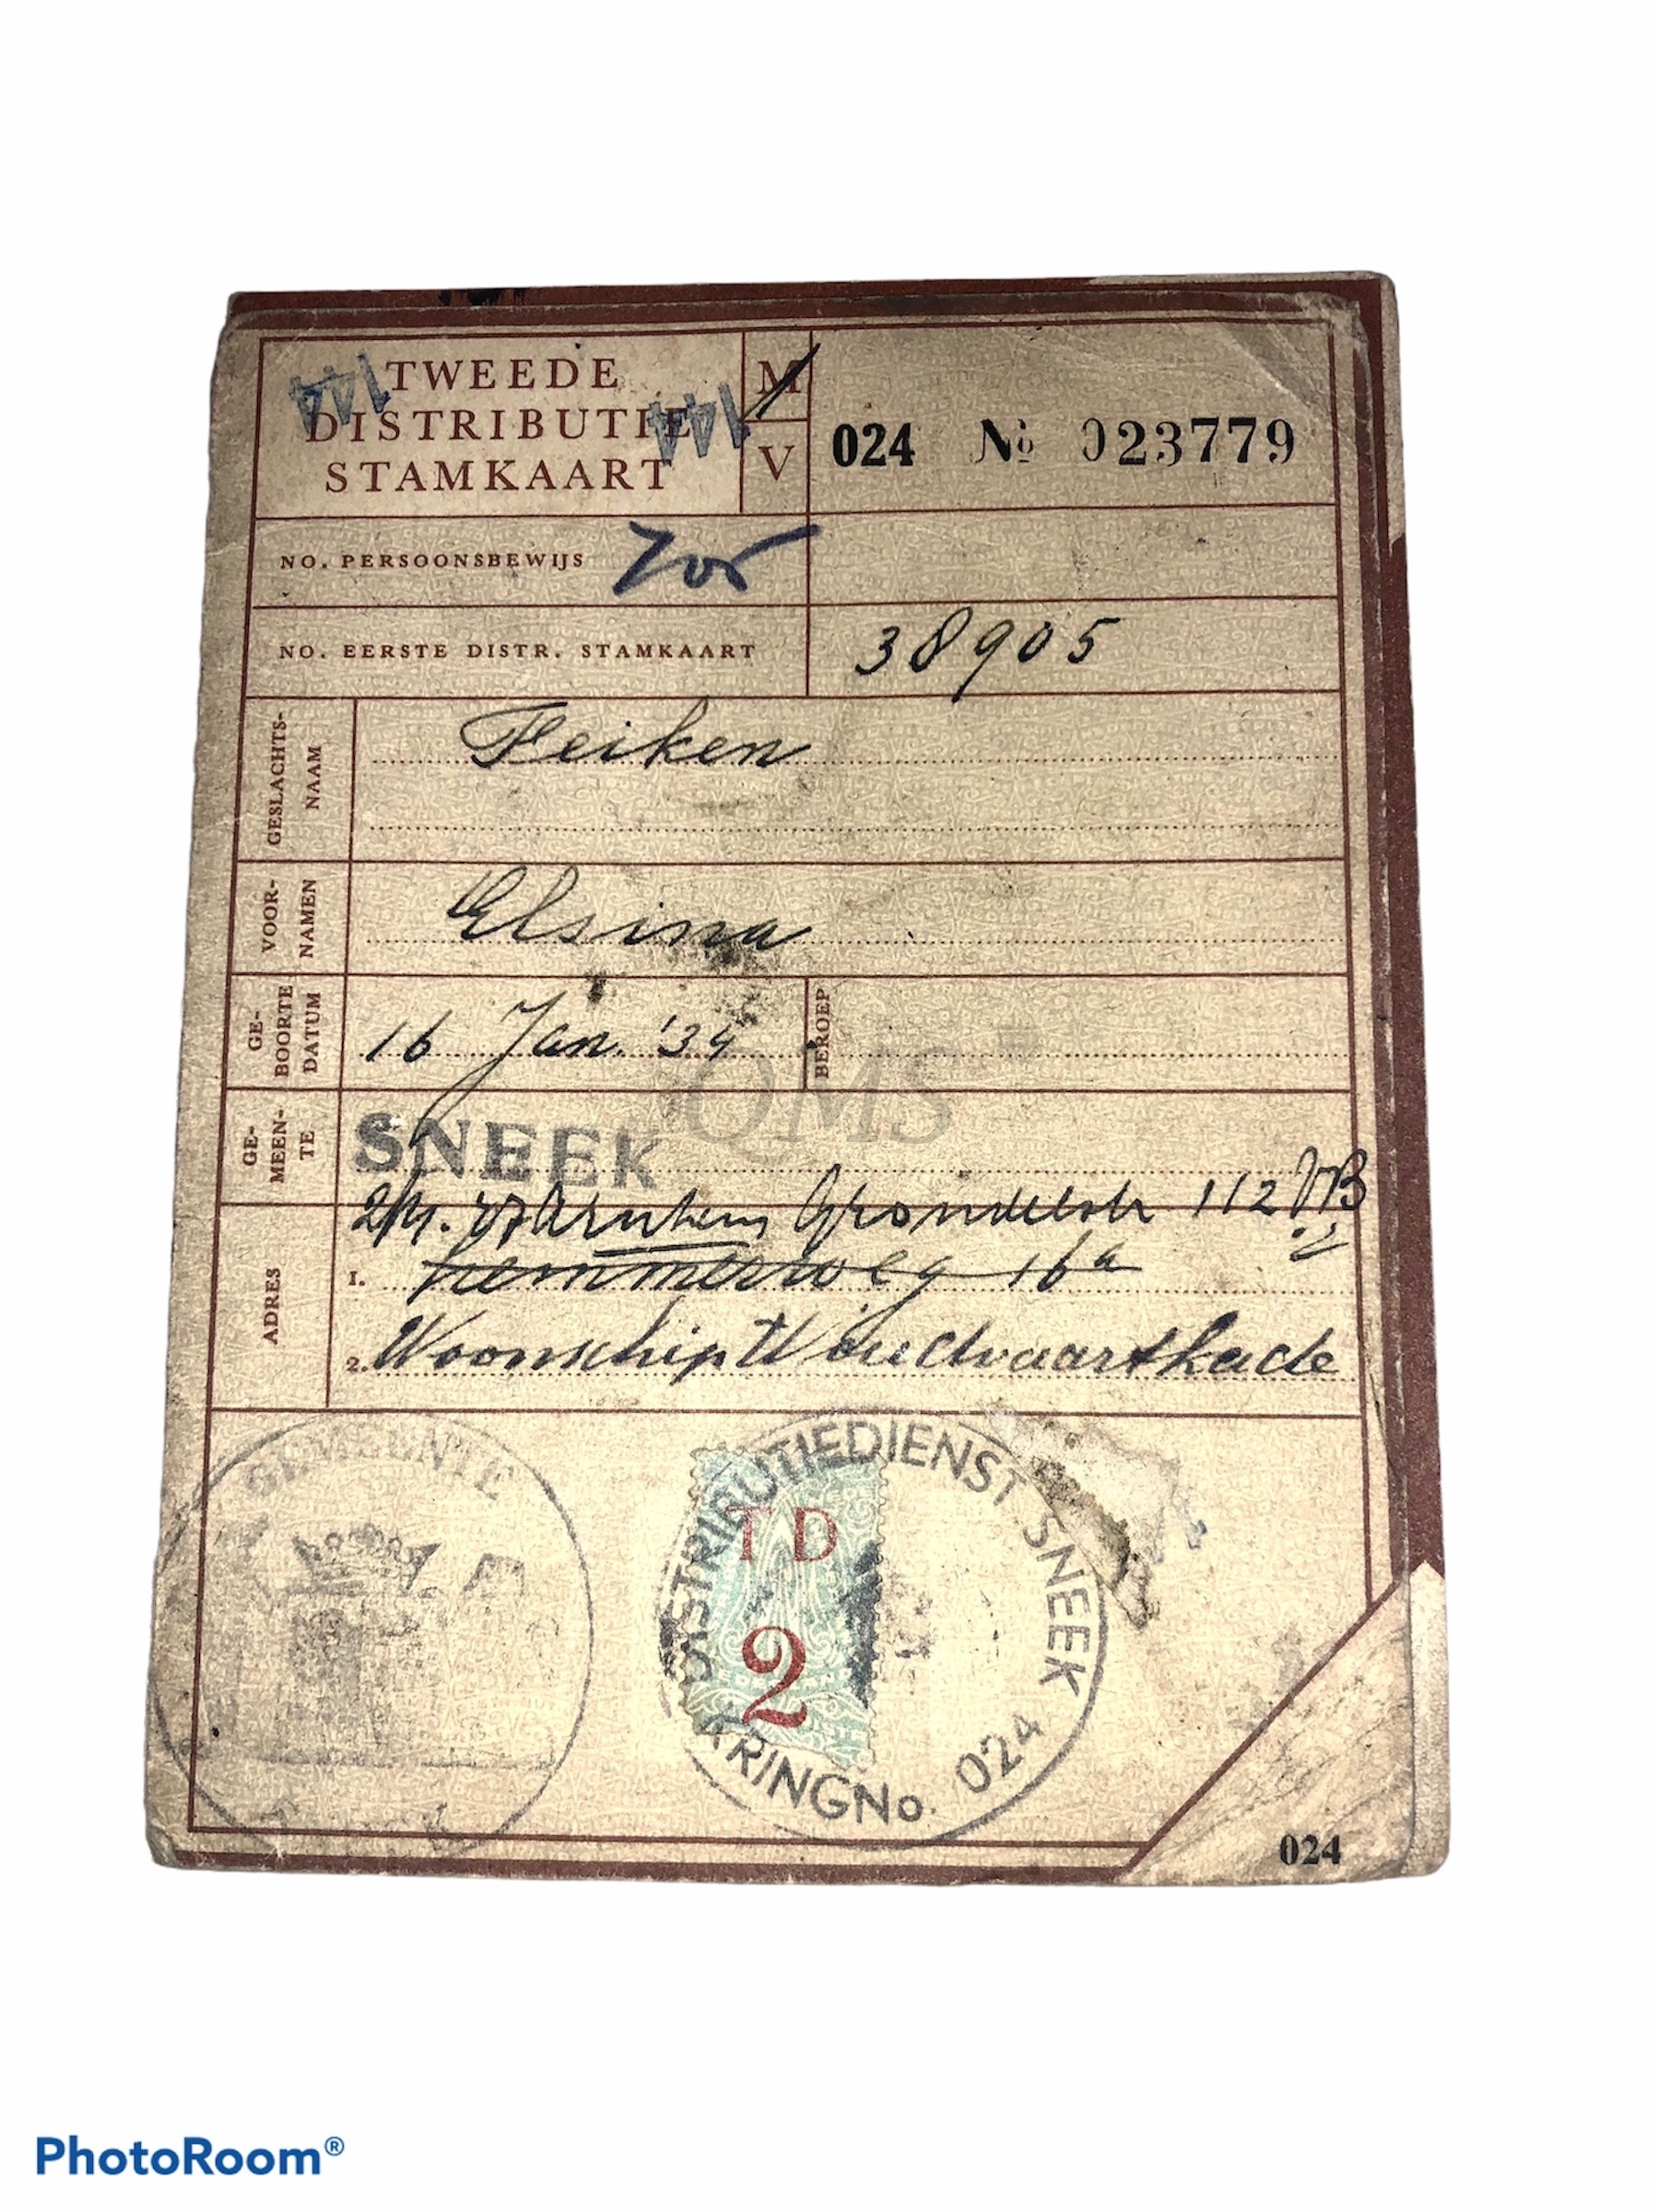 TWEEDE
DISTRIBUTIE
STAMKAART
144
144
M
V
024 No 023779
NO. PERSOONSBEWIJS
NO. EERSTE DISTR. STAMKAART 38905
GESLACHTS-
NAAM
Feiken
VOOR-
NAMEN
Elsina
GE-
BOORTE
DATUM
16 Jan. '34
BEROEP
QMS
GE-
MEEN-
TE
SNEEK
Arnhem 112
ADRES
1. Lemmerweg 16a
2. Woonschip Woudvaartkade
GEMEENTE
DISTRIBUTIEDIENST SNEEK
KRING No. 024
TD
2
024
PhotoRoom®